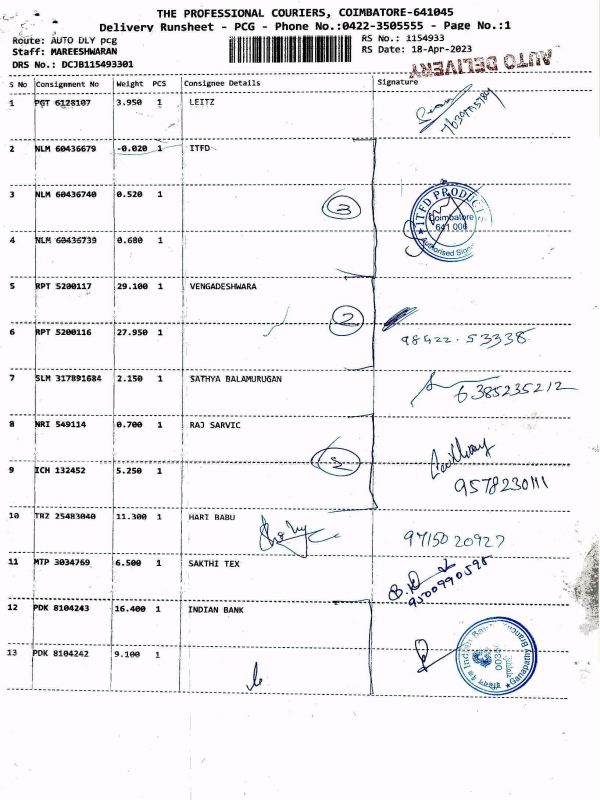 THE PROFESSIONAL COURIERS, COIMBATORE-641045
Delivery Runsheet - PCG - Phone No.:0422-3505555 - Page No.:1
Route: AUTO DLY pcg
RS No.: 1154933
Staff: MAREESHWARAN
RS Date: 18-Apr-2023
DRS No.: DCJB115493301
AUTO DELIVERY
S No Consignment No Weight PCS Consignee Details Signature
1 PGT 6128107 3.950 1 LEITZ
2 NLM 60436679 -0.020 1 ITFD
3 NLM 60436740 0.520 1
3
ITFD PRODUCTS
Coimbatore
641 006
Authorised Sign
4 NLM 60436739 0.680 1
5 RPT 5200117 29.100 1 VENGADESHWARA
2
6 RPT 5200116 27.950 1 98422.53338
7 SLM 317891684 2.150 1 SATHYA BALAMURUGAN
6385235212
8 NRI 549114 0.700 1 RAJ SARVIC
9 ICH 132452 5.250 1
9578230111
10 TRZ 25483040 11.300 1 HARI BABU
9715020927
11 MTP 3034769 6.500 1 SAKTHI TEX
9500990595
12 PDK 8104243 16.400 1 INDIAN BANK
13 PDK 8104242 9.100 1
Ganapathy Branch